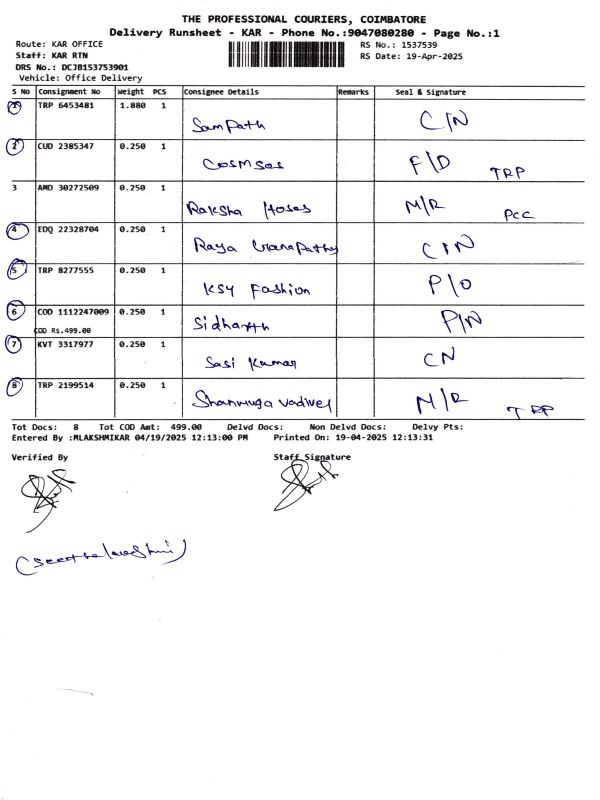 THE PROFESSIONAL COURIERS, COIMBATORE
Delivery Runsheet - KAR - Phone No.:9047080280 - Page No.:1
Route: KAR OFFICE RS No.: 1537539
Staff: KAR RTN RS Date: 19-Apr-2025
DRS No.: DCJB153753901
Vehicle: Office Delivery
S No Consignment No Weight PCS Consignee Details Remarks Seal & Signature
1 TRP 6453481 1.880 1 Sampath C/N
2 CUD 2385347 0.250 1 Cosmsos F/D TRP
3 AMD 30272509 0.250 1 Raksha Hoses M/R PCC
4 EDQ 22328704 0.250 1 Raya Ganapathy C/N
5 TRP 8277555 0.250 1 KSY Fashion P/O
6 COD 1112247009 0.250 1 Sidharth P/N
COD Rs.499.00
7 KVT 3317977 0.250 1 Sasi Kumar CN
8 TRP 2199514 0.250 1 Shanmuga vadivel M/R TRP
Tot Docs: 8 Tot COD Amt: 499.00 Delvd Docs: Non Delvd Docs: Delvy Pts:
Entered By :MLAKSHMIKAR 04/19/2025 12:13:00 PM Printed On: 19-04-2025 12:13:31
Verified By Staff Signature